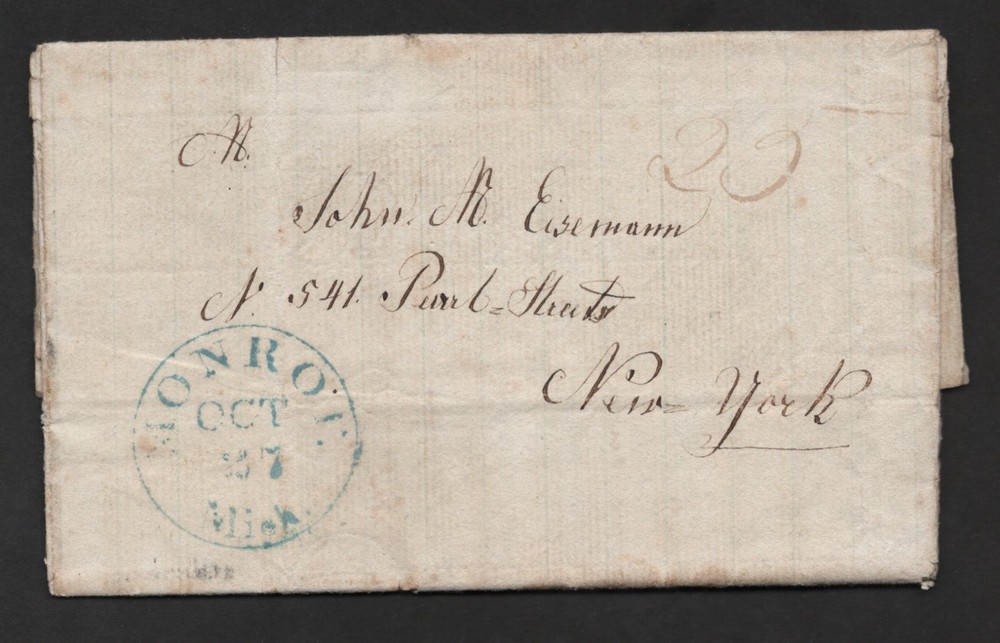 M.
25
John. M. Eisemann
N. 541. Pearl=Streets
New=York
MONROE
OCT
27
Mich.